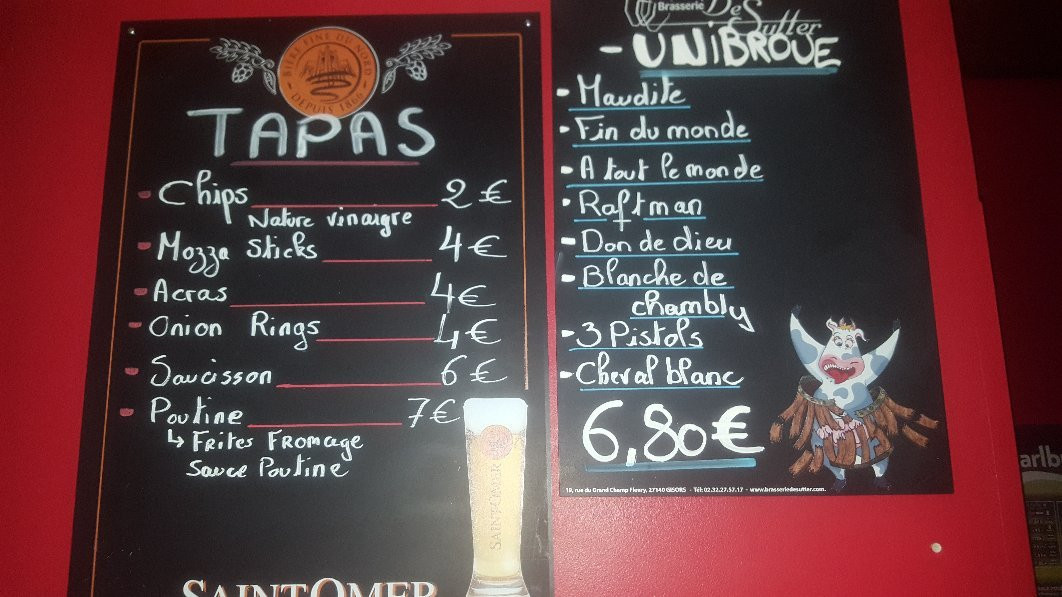 BIÈRE FINE DU NORD
DEPUIS 1866
TAPAS
- Chips 2 €
Nature vinaigre
- Mozza Sticks 4 €
- Acras 4 €
- Onion Rings 4 €
- Saucisson 6 €
- Poutine 7 €
↳ Frites Fromage
Sauce Poutine
SAINT OMER
SAINT OMER
Brasserie De Sutter
- UNIBROUE
- Maudite
- Fin du monde
- A tout le monde
- Raftman
- Don de dieu
- Blanche de
chambly
- 3 Pistols
- Cheval blanc
6,80 €
19, rue du Grand Champ Fleury, 27140 GISORS - Tél: 02.32.27.57.17 - www.brasseriedesutter.com
arlb